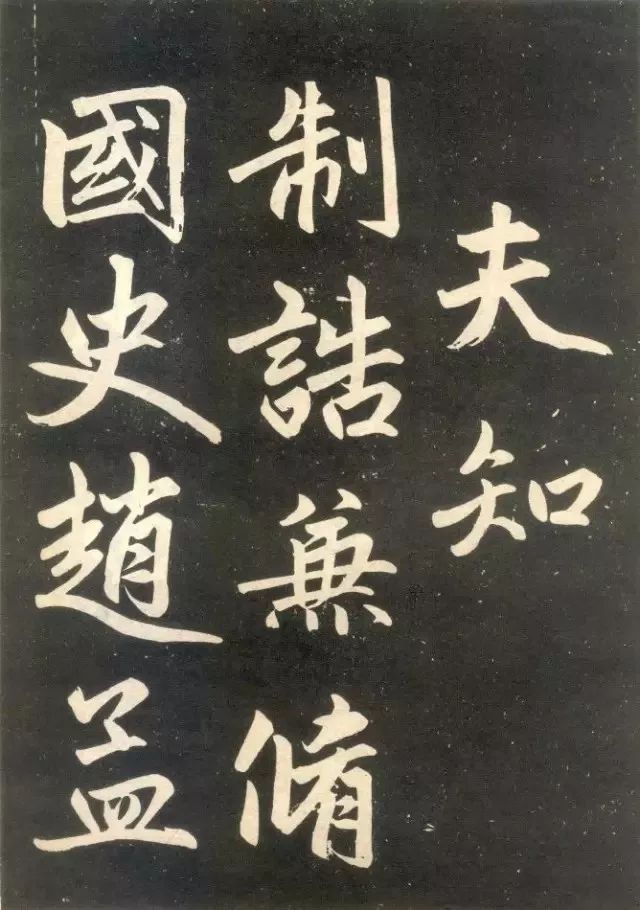 夫知
制誥兼脩
國史趙孟